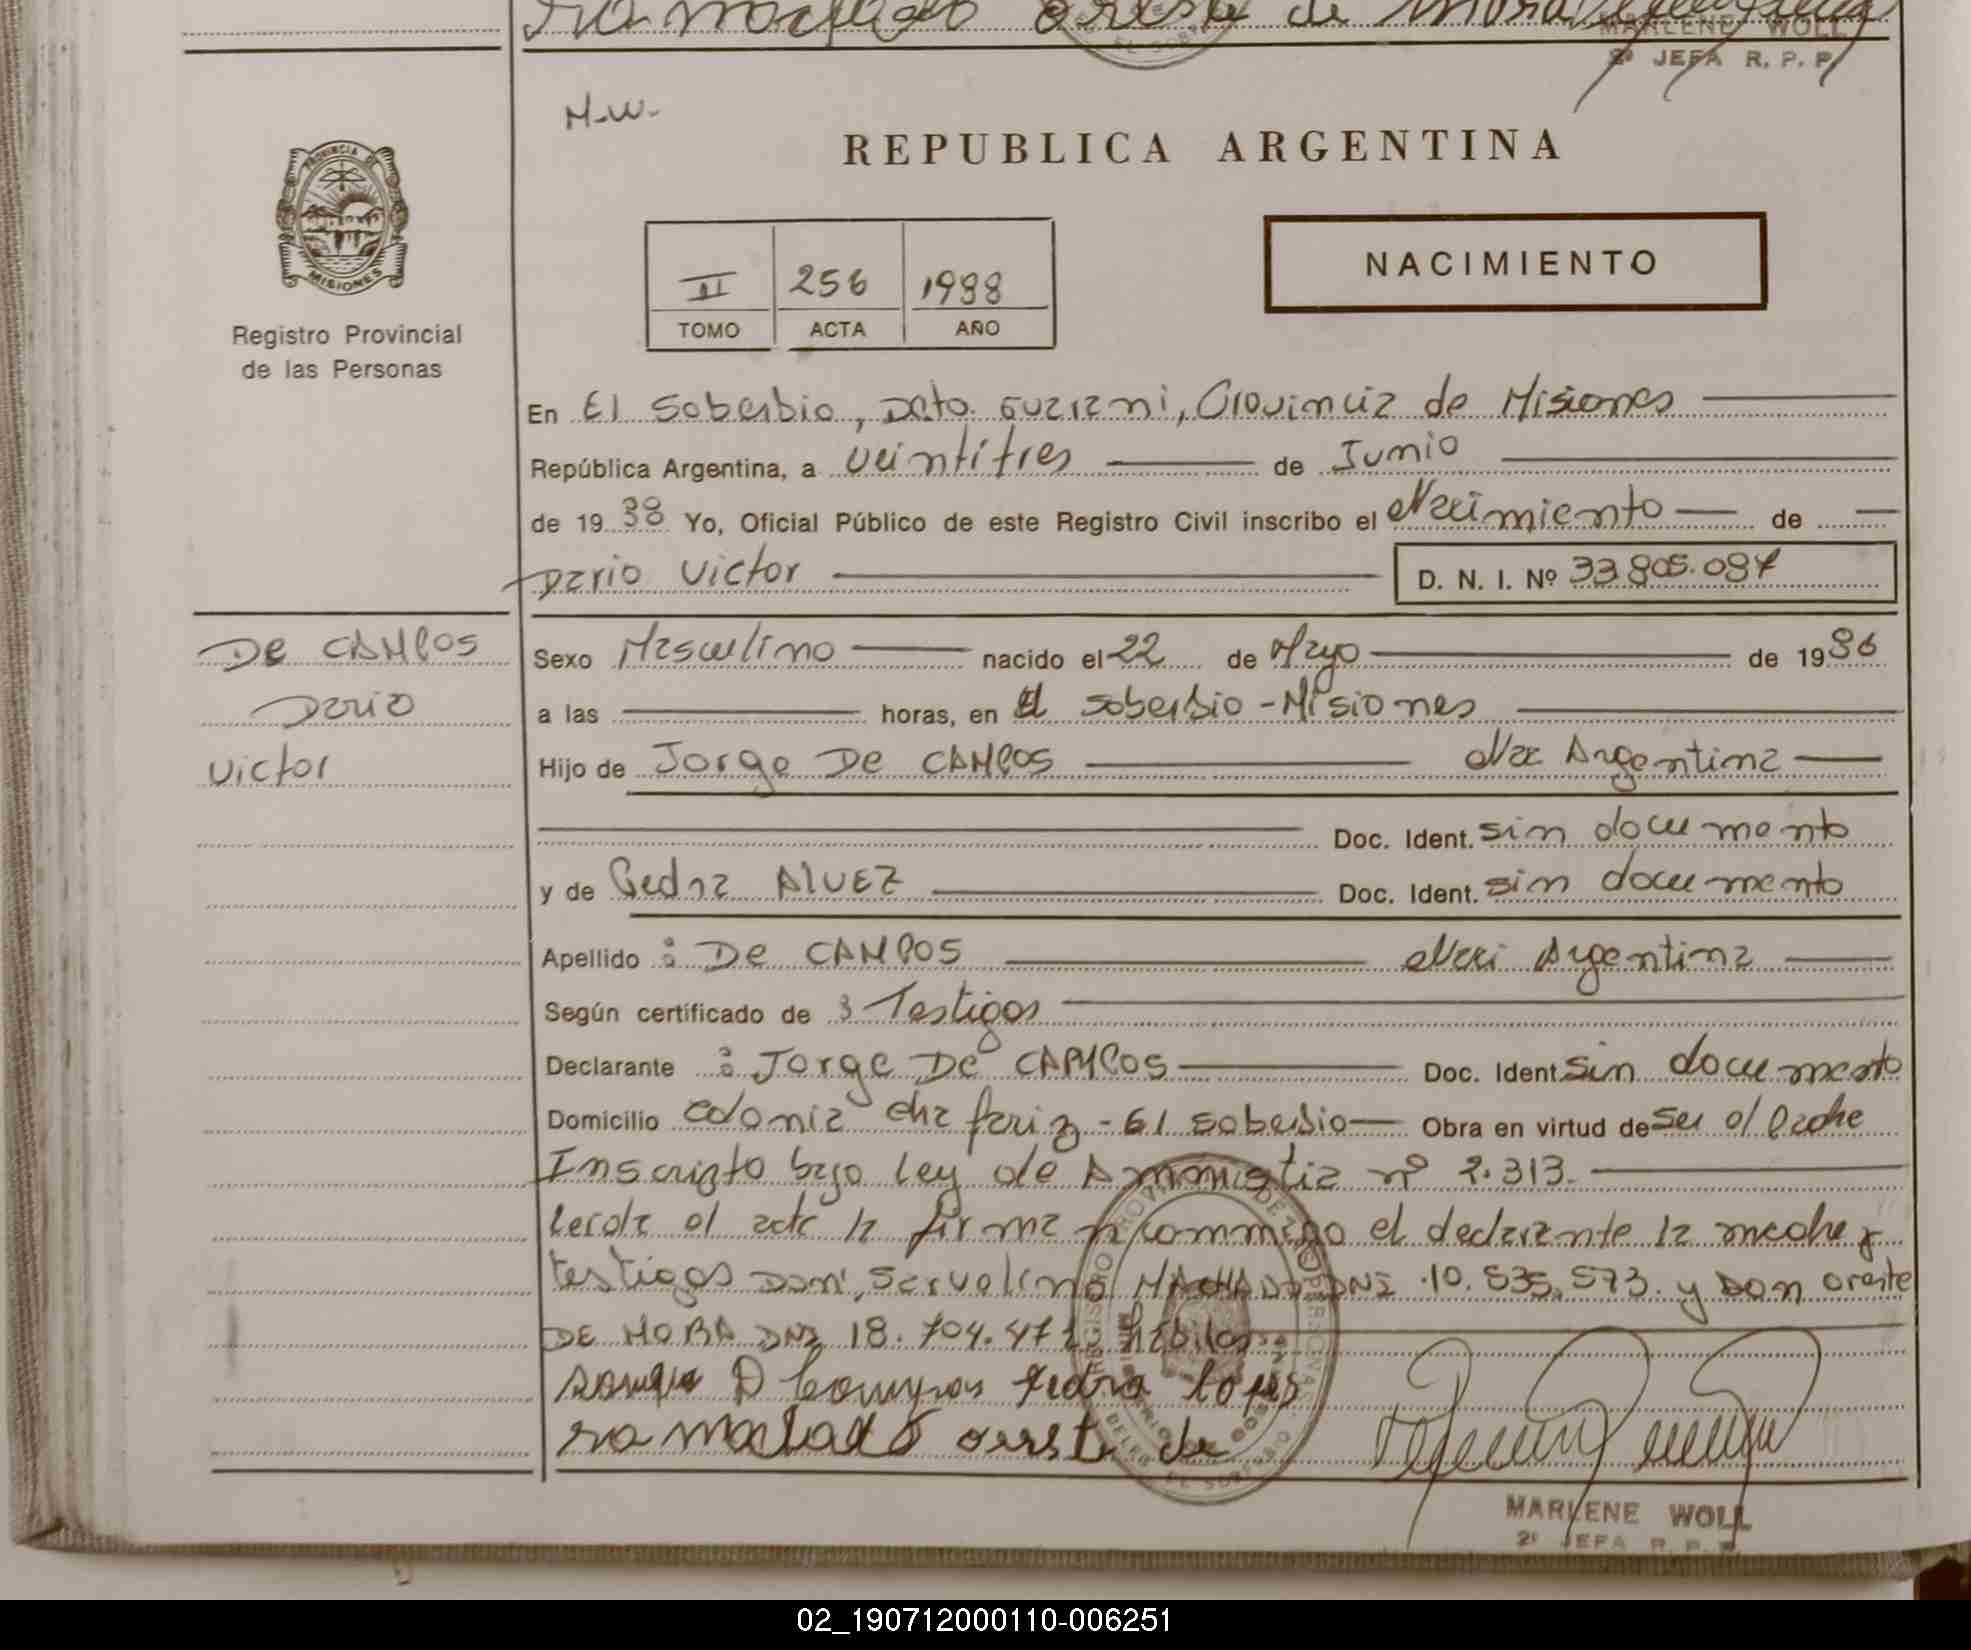 MARLENE WOLL
2ª JEFA R. P. P.
M-W-
REPUBLICA ARGENTINA
PROVINCIA DE
MISIONES
Registro Provincial
de las Personas
II 256 1988
TOMO ACTA AÑO
NACIMIENTO
En El Soberbio, Dpto. Guarani, Provincia de Misiones
República Argentina, a veintitres de Junio
de 19 88 Yo, Oficial Público de este Registro Civil inscribo el Nacimiento de
Dario Victor D. N. I. Nº 33.805.087
DE CAMPOS
Dario
Victor
Sexo Masculino nacido el 22 de Mayo de 19 86
a las horas, en El Soberbio - Misiones
Hijo de Jorge De CAMPOS Nac Argentina
Doc. Ident. sin documento
y de Pedra ALVEZ Doc. Ident. sin documento
Apellido : De CAMPOS Naci Argentina
Según certificado de 3 Testigos
Declarante : Jorge De CAMPOS Doc. Ident sin documento
Domicilio Colonia Cha - El Soberbio Obra en virtud de ser el Padre
Inscripto bajo Ley de Amnistia nº 2.313.
Leida el acta la firman conmigo el declarante la madre y
testigos Don, Servolino MACHADO DNI 10.535.573. y Don Oreste
DE MORA DNI 18.704.472 habiles
D Campos Pedra Lopes
machado oreste de
MARLENE WOLL
2ª JEFA R. P. P.
02_190712000110-006251